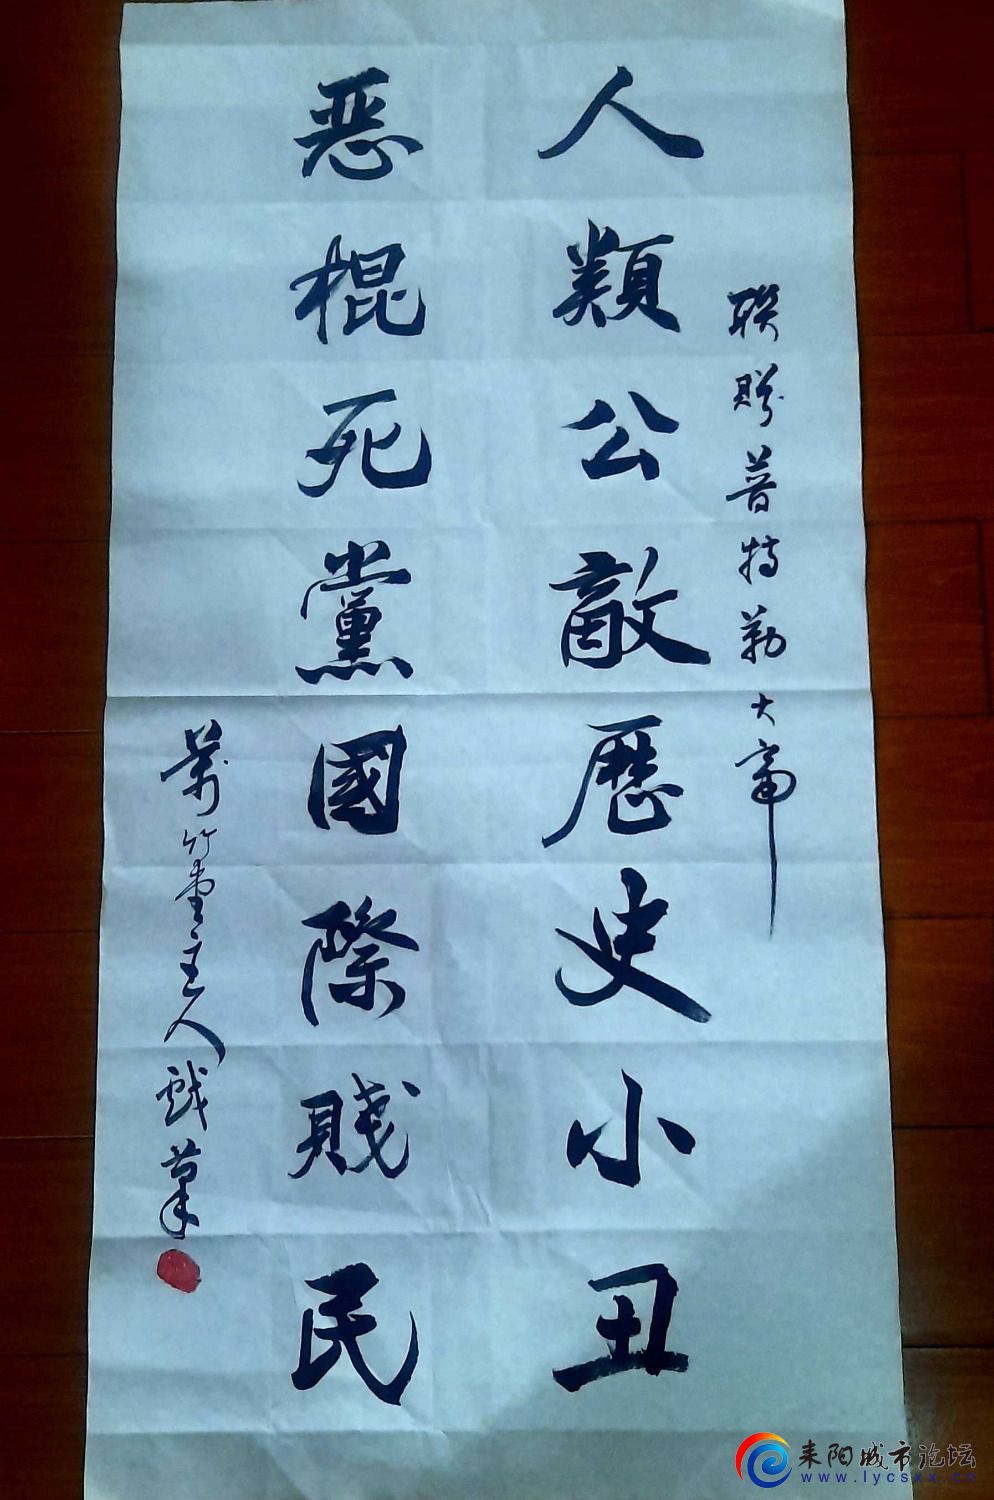 聯賜普特勒大帝
人類公敵歷史小丑
恶棍死黨國際賤民
萬竹堂主人戲筆
耒阳城市论坛
www.lycsxx.cn